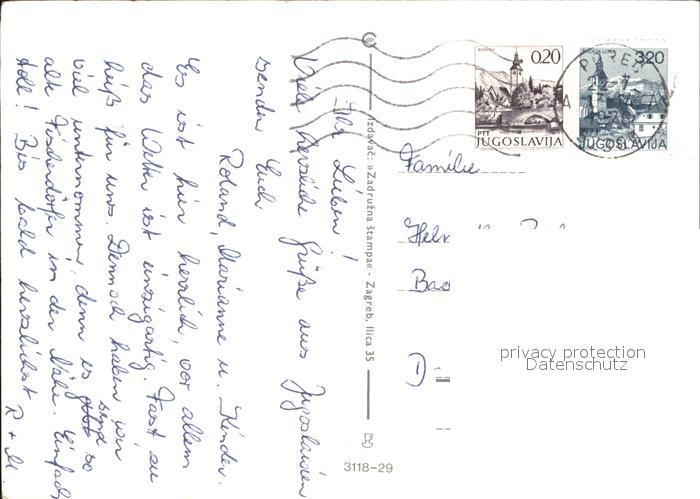 Ihr Lieben!
Viele herzliche Grüße aus Jugoslawien
senden Euch
Roland, Marianne u. Kinder.
Es ist hier herrlich, vor allem
das Wetter ist einzigartig. Fast zu
heiß für uns. Dennoch haben wir
viel unternommen, denn es sind so
alte Fischerdörfer in der Nähe. Einfach
toll! Bis bald herzlichst R + M
Izdavač: »Zadružna štampa« - Zagreb, Ilica 35
3118-29
BOHINJ
0,20
PTT
JUGOSLAVIJA
ŠKOFJA LOKA
3,20
JUGOSLAVIJA
Familie
D-
privacy protection
Datenschutz